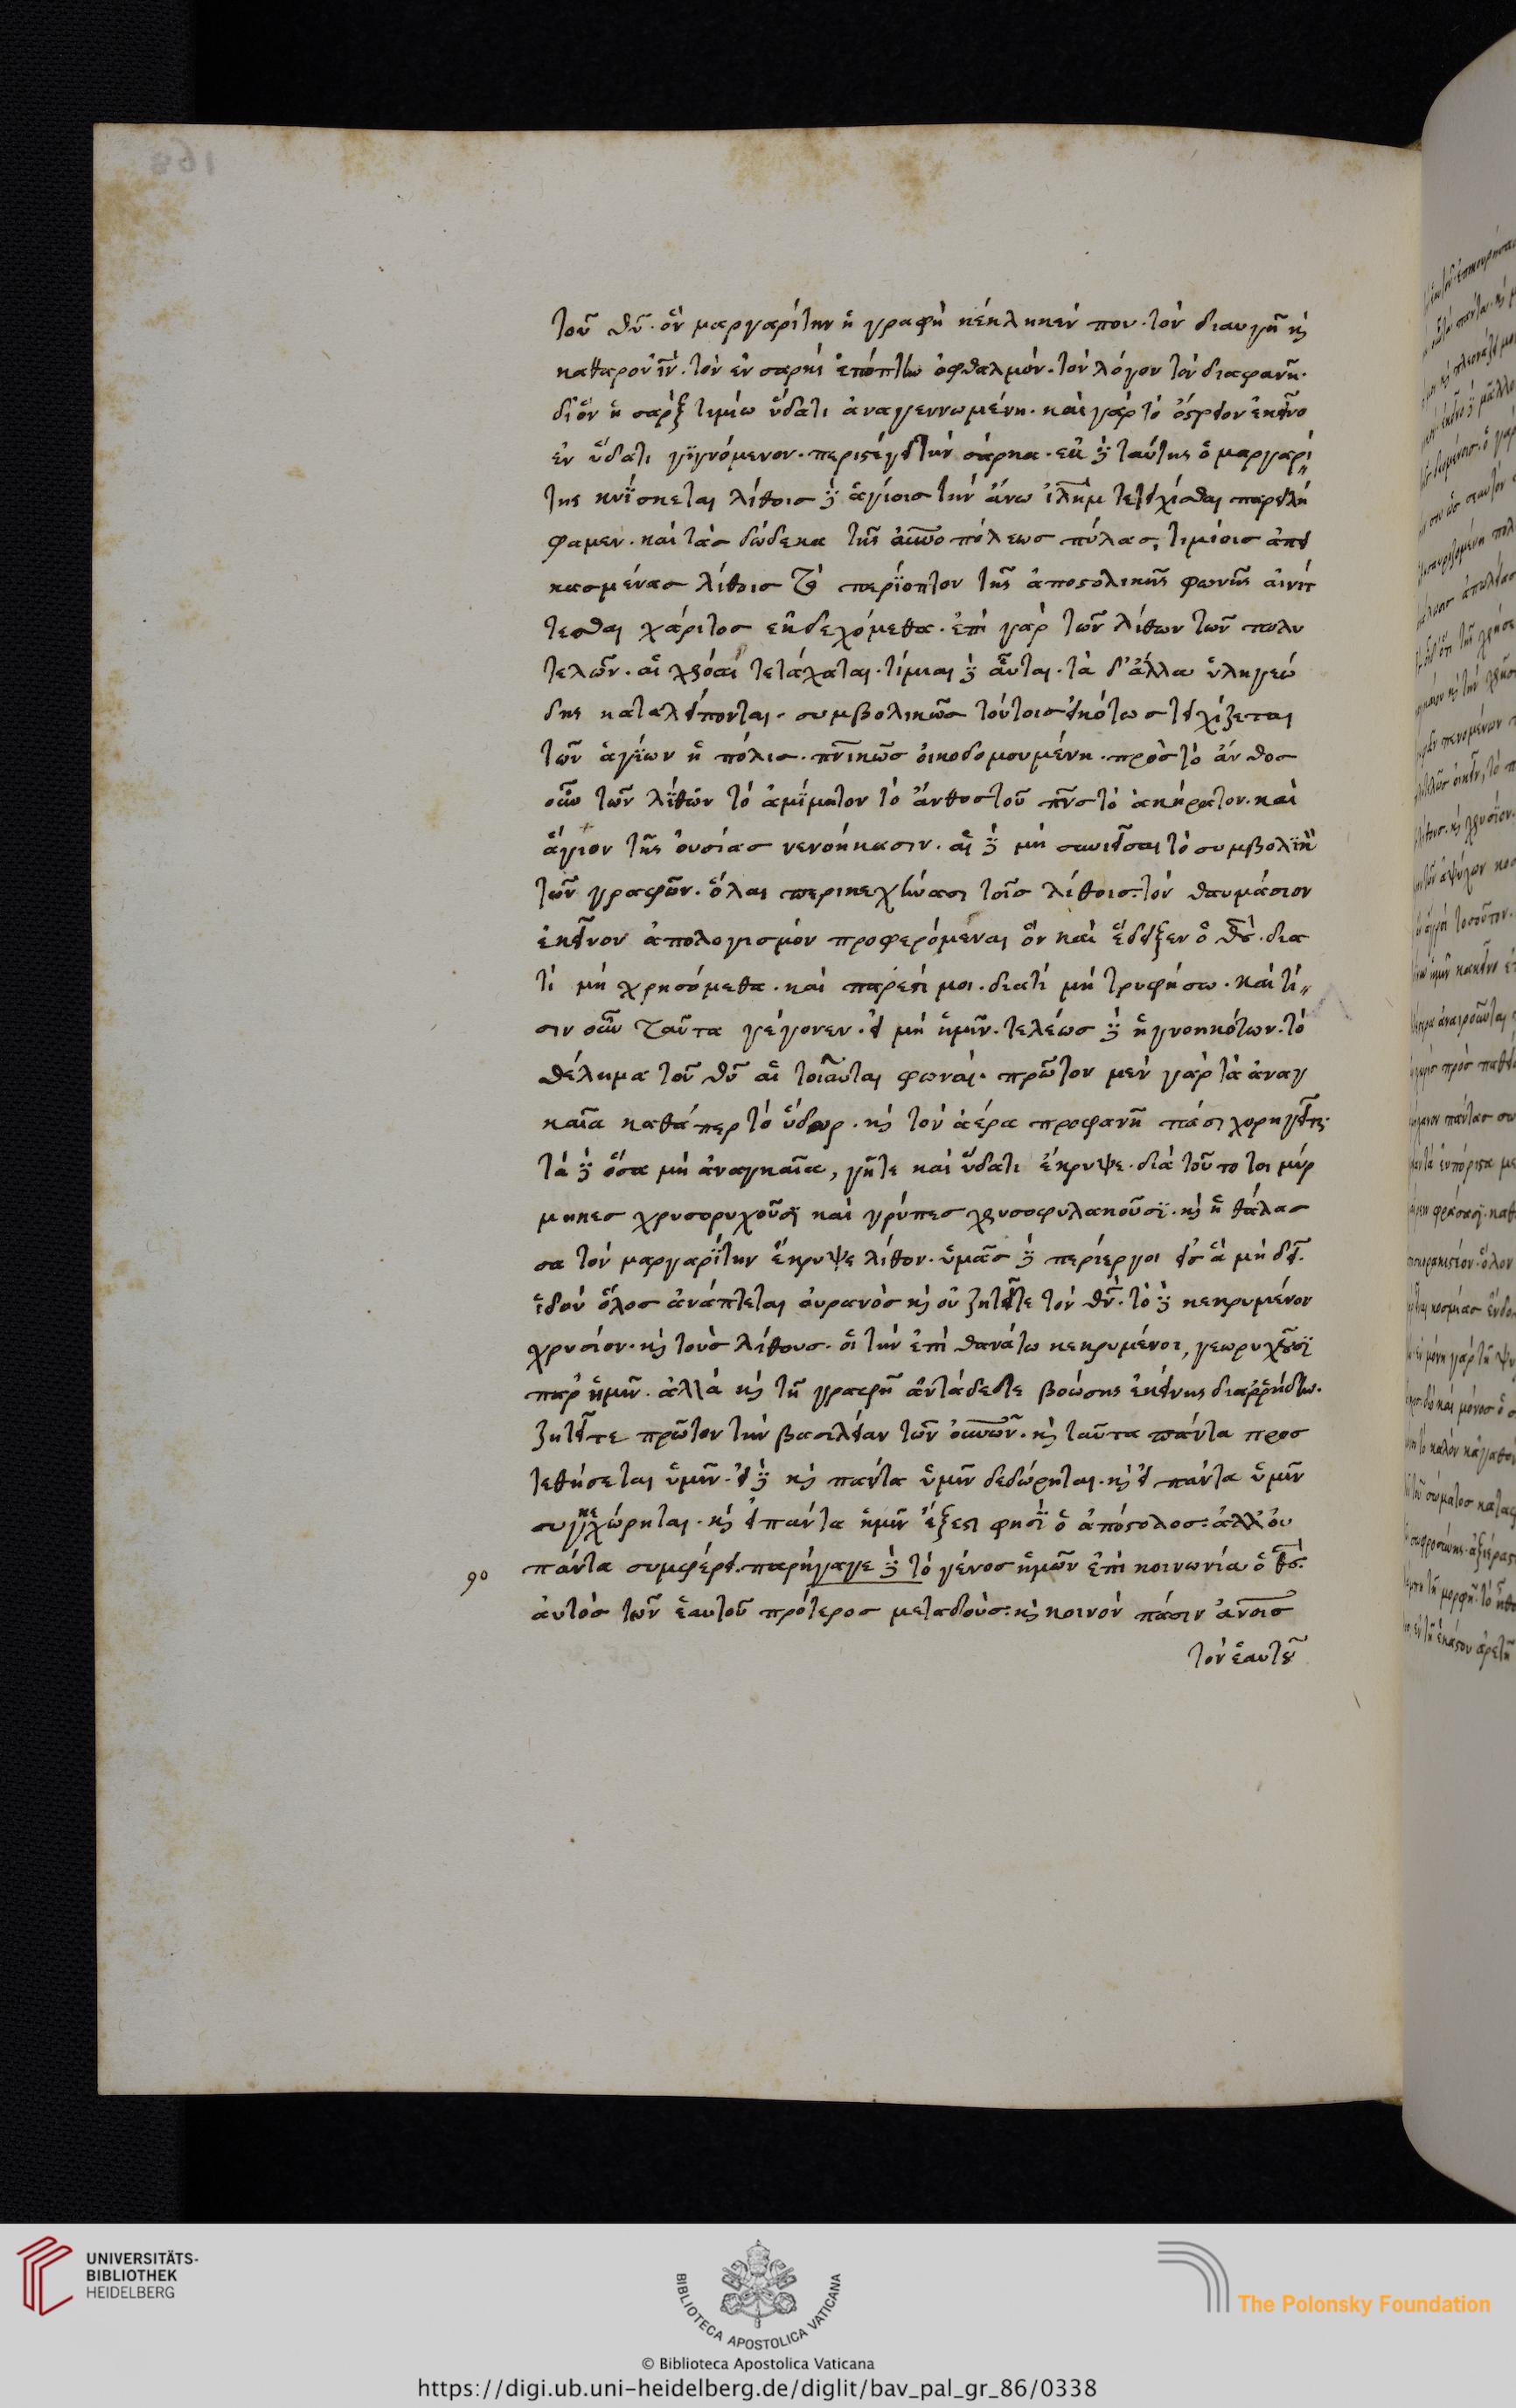 τοῦ θῦ. ὃν μαργαρίτην ἡ γραφὴ κέκληκέν που. τὸν διαυγῆ κς
καθαρὸν ιν. τὸν ἐν σαρκὶ ἐπόπτην ὀφθαλμόν. τὸν λόγον τὸν διαφανῆ.
δι ὃν ἡ σὰρξ τιμίω ὕδατι ἀναγεννωμένη. καὶ γὰρ τὸ ὄστρειον ἐκεῖνο
ἐν ὕδατι γιγνόμενον. περιστέγει τὴν σάρκα. ἐκ δὲ ταύτης ὁ μαργαρί
της κυΐσκεται λίθοις δὲ ἁγίοις τὴν ἄνω ἱλημ τετειχίσθαι παρειλή
φαμεν. καὶ τὰς δώδεκα τῆς οὐνο πόλεως πύλας, τιμίοις ἀπει
κασμένας λίθοις τὸ περίοπτον τῆς ἀποστολικῆς φωνῆς αἰνίτ
τεσθαι χάριτος ἐκδεχόμεθα. ἐπὶ γὰρ τῶν λίθων τῶν πολυ
τελῶν. αἱ χρόαι τετάχαται. τίμιαι δὲ αὗται. τὰ δ' ἄλλα ὕλη γεώ
δης καταλείπονται. συμβολικῶς τούτοις εἰκότως τειχίζεται
τῶν ἁγίων ἡ πόλις. πνικῶς οἰκοδομουμένη. πρὸς τὸ ἄνθος
οὖν τῶν λίθων τὸ ἀμίμητον τὸ ἄνθος τοῦ πνς τὸ ἀκήρατον. καὶ
ἅγιον τῆς οὐσίας νενοήκασιν. αἱ δὲ μὴ συνιεῖσαι τὸ συμβολικὸν
τῶν γραφῶν. ὅλαι περικεχήνασι τοῖς λίθοις. τὸν θαυμάσιον
ἐκεῖνον ἀπολογισμὸν προφερόμεναι ὃν καὶ ἔδειξεν ὁ θς. δια
τί μὴ χρησόμεθα. καὶ πάρεστί μοι. διατί μὴ τρυφήσω. καὶ τί
σιν οὖν ταῦτα γέγονεν. εἰ μὴ ἡμῖν. τελέως δὲ ἠγνοηκότων. τὸ
θέλημα τοῦ θῦ αἱ τοιαῦται φωναί. πρῶτον μὲν γὰρ τὰ ἀναγ
καῖα καθάπερ τὸ ὕδωρ. κς τὸν ἀέρα προφανῆ πᾶσι χορηγεῖ
τὰ δὲ ὅσα μὴ ἀναγκαῖα, γῆ τε καὶ ὕδατι ἔκρυψε. διὰ τοῦτο τοι μύρ
μηκες χρυσορυχοῦσι καὶ γρύπες χρυσοφυλακοῦσι. κς ἡ θάλασ
σα τὸν μαργαρίτην ἔκρυψε λίθον. ὑμᾶς δὲ περίεργοι εἰς ἃ μὴ δεῖ.
ἰδοὺ ὅλος ἀνάπτεται οὐρανὸς κς οὐ ζητεῖτε τὸν θν. τὸ δὲ κεκρυμένον
χρυσίον. κς τοὺς λίθους. οἱ τὴν ἐπὶ θανάτω κεκρυμένοι, γεωρυχοῦσι
παρ' ἡμῖν. ἀλλὰ κς τῇ γραφῇ ἀντάδετε βοώσης ἐκείνης διαρρήδην.
ζητεῖτε πρῶτον τὴν βασιλείαν τῶν οὐνῶν. κς ταῦτα πάντα προσ
τεθήσεται ὑμῖν. εἰ δὲ κς πάντα ὑμῖν δεδώρηται. κς εἰ πάντα ὑμῖν
συγκεχώρηται. κς εἰ πάντα ἡμῖν ἔξεστι φησὶ ὁ ἀπόστολος: ἀλλ' οὐ
90 πάντα συμφέρει. παρήγαγε δὲ τὸ γένος ἡμῶν ἐπὶ κοινωνία ὁ θς.
αὐτὸς τῶν ἑαυτοῦ πρότερος μεταδούς: κς κοινὸν πᾶσιν ἀνοις
τὸν ἑαυτοῦ
UNIVERSITÄTS-
BIBLIOTHEK
HEIDELBERG
BIBLIOTECA APOSTOLICA VATICANA
The Polonsky Foundation
© Biblioteca Apostolica Vaticana
https://digi.ub.uni-heidelberg.de/diglit/bav_pal_gr_86/0338